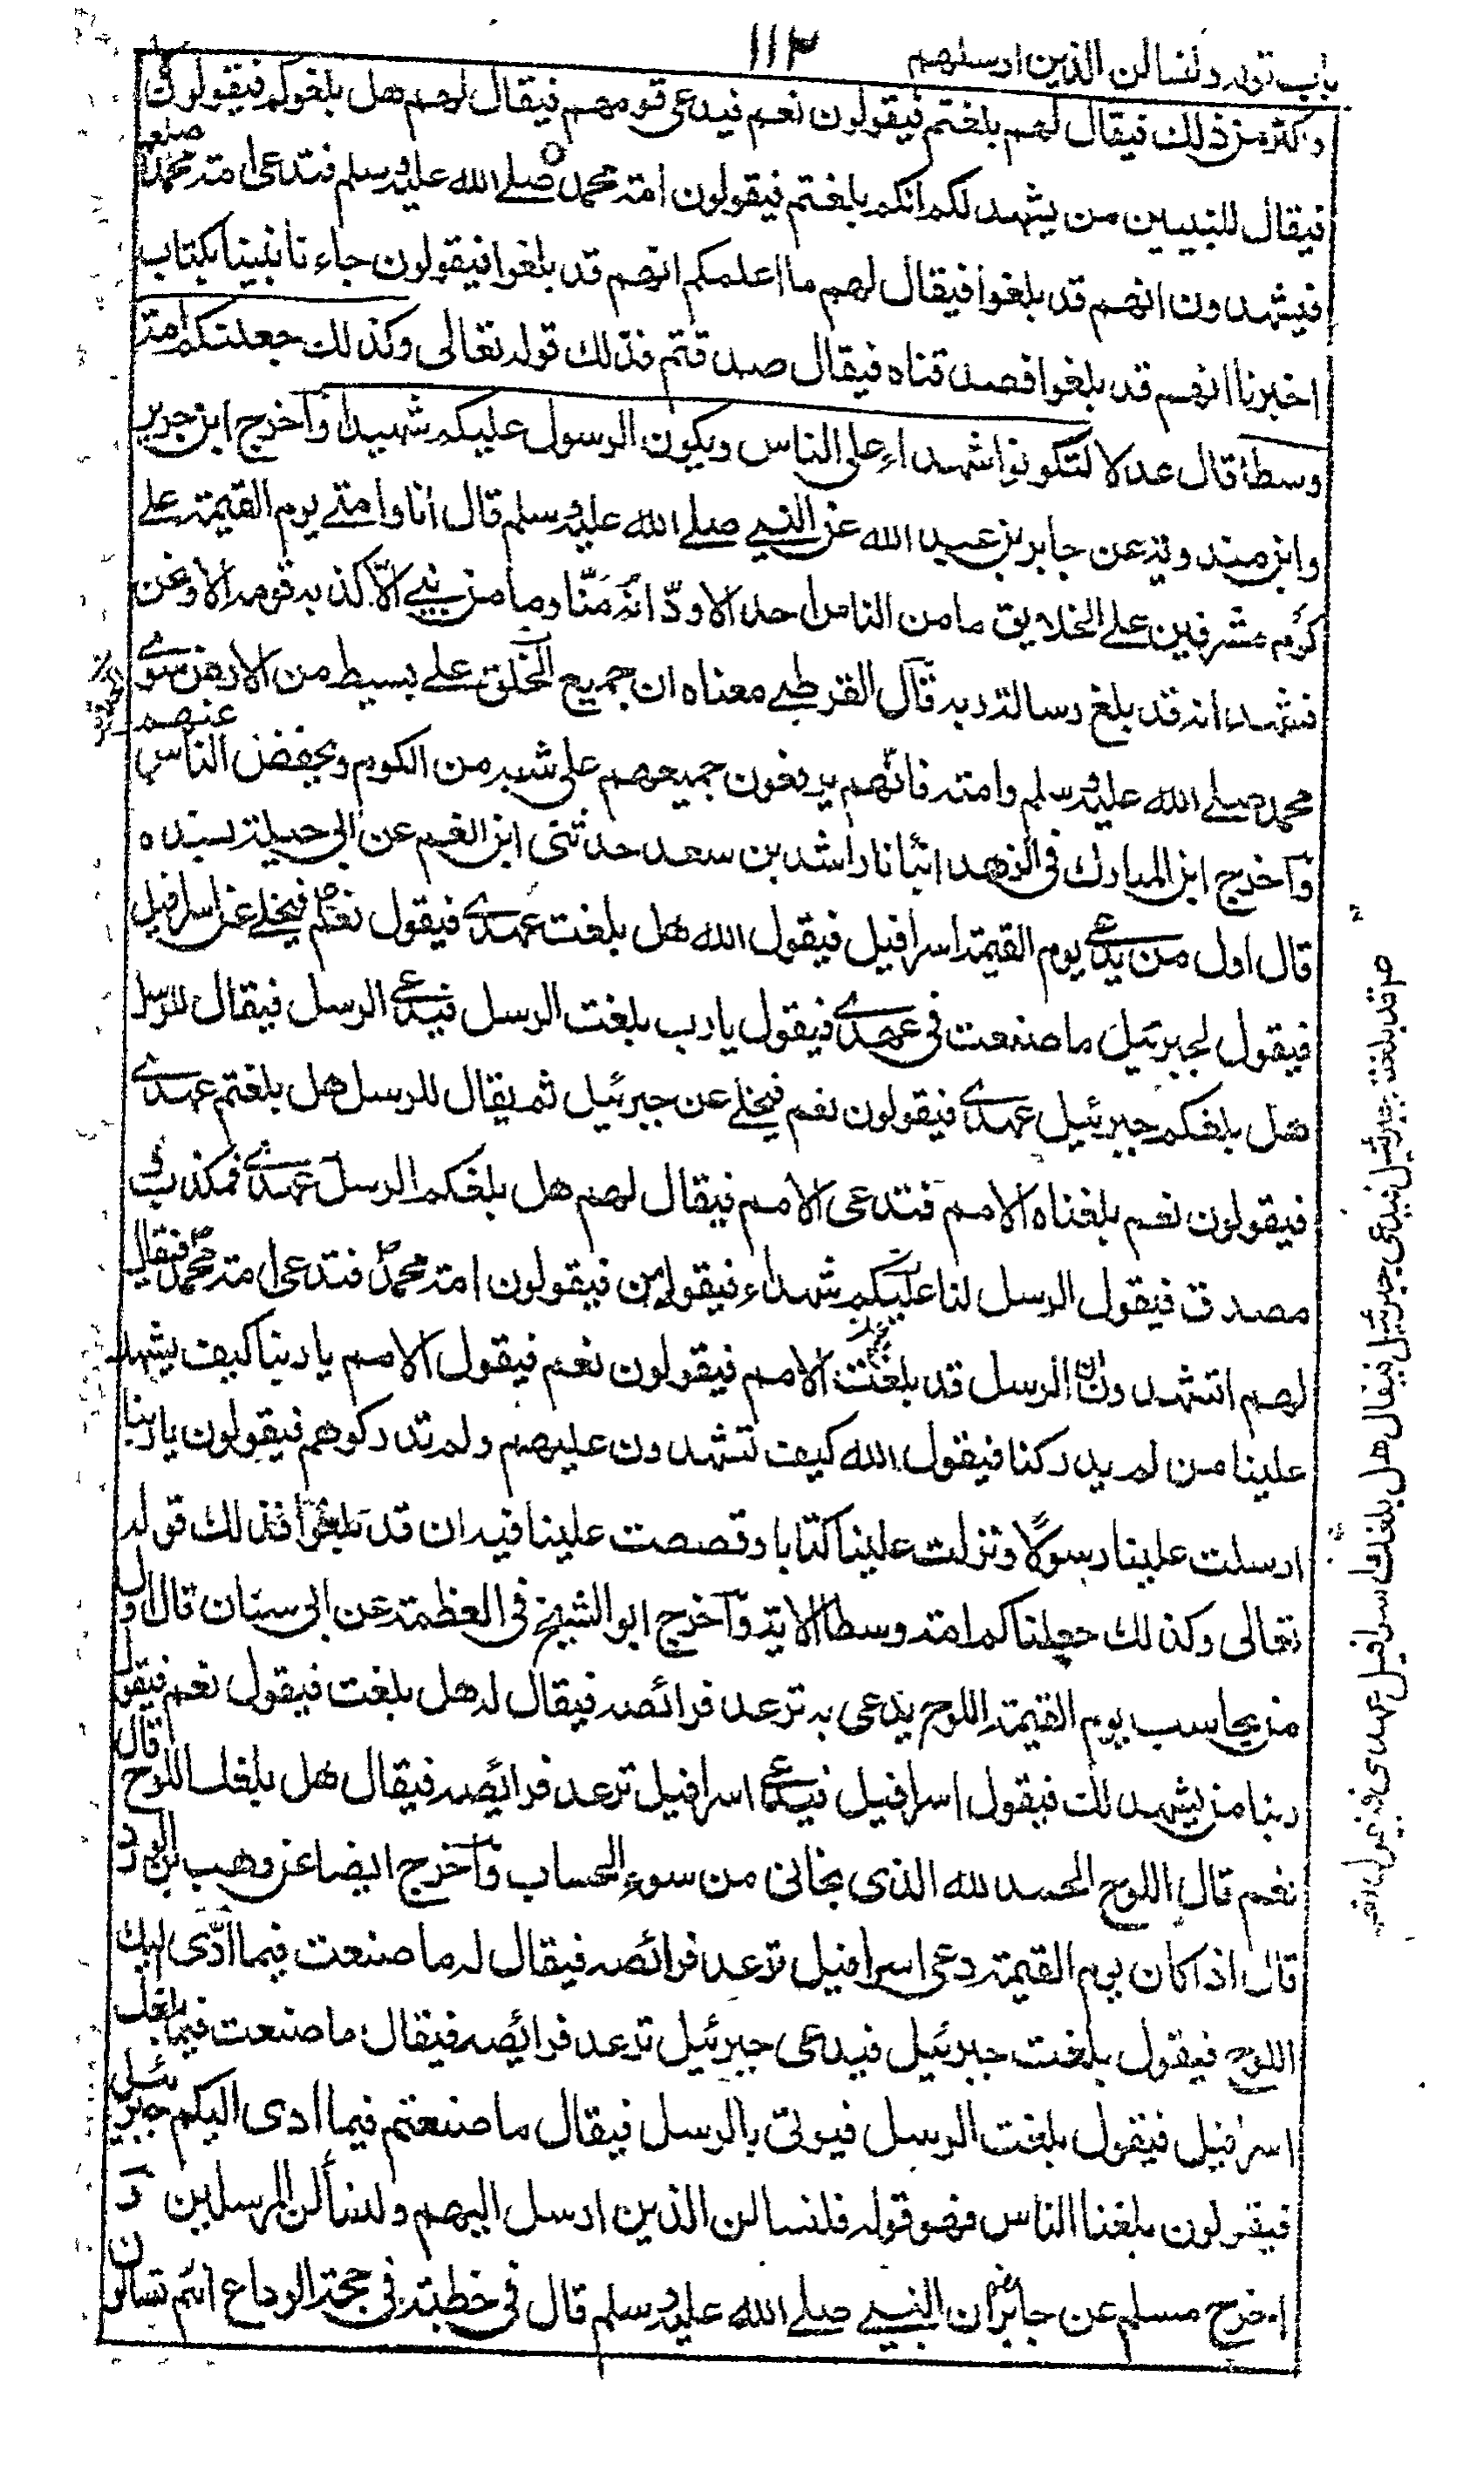 باب قوله ولنسالن الذين ارسلهم ١١٣
واكثر من ذلك فيقال لهم بلغتم فيقولون نعم فيدعى قومهم فيقال لهم هل بلغوكم فيقولون لا
فيقال للنبيين من يشهد لكم انكم بلغتم فيقولون امة محمد صلى الله عليه وسلم فتدعى امة محمد صلعم
فيشهدون انهم قد بلغوا فيقال لهم ما اعلمكم انهم قد بلغوا فيقولون جاءنا نبينا بكتاب
اخبرنا انهم قد بلغوا فصدقناه فيقال صدقتم فذلك قوله تعالى وكذلك جعلنكم امة
وسطا قال عدلا لتكونوا شهداء على الناس ويكون الرسول عليكم شهيدا وآخرج ابن جرير
وابن مندويه عن جابر بن عبد الله عن النبي صلى الله عليه وسلم قال انا وامتي يوم القيمة على
كوم مشرفين على الخلايق ما من الناس احد الا ودّ انه منّا وما من نبي الّا كذبه قومه الا ونحن
نشهد انه قد بلغ رسالة ربه قال القرطبي معناه ان جميع الخلق على بسيط من الارض سوى
محمد صلى الله عليه وسلم وامته فانهم يرفعون جميعهم على شبه من الكوم ويخفض الناس عنهم
وآخرج ابن المبارك في الزهد انبأنا راشد بن سعد حدثنى ابن انعم عن ابى حبلة بسنده
قال اول من يدعى يوم القيمة اسرافيل فيقول الله هل بلغت عهدي فيقول نعم فيخلى عن اسرافيل
فيقول لجبرئيل ما صنعت فى عهدي فيقول يا رب بلغت الرسل فيدعى الرسل فيقال للرسل
هل بلغكم جبريئيل عهدي فيقولون نعم فيخلى عن جبرئيل ثم يقال للرسل هل بلغتم عهدي
فيقولون نعم بلغناه الامم فتدعى الامم فيقال لهم هل بلغكم الرسل عهدي فمكذب و
مصدق فيقول الرسل لنا عليكم شهداء فيقول من فيقولون امة محمد فتدعى امة محمد فيقال
لهم اتشهدون ان الرسل قد بلغت الامم فيقولون نعم فيقول الامم يا ربنا كيف يشهد
علينا من لم يدركنا فيقول الله كيف تشهدون عليهم ولم تدركوهم فيقولون يا ربنا
ارسلت علينا رسولا ونزلت علينا كتابا وقصصت علينا فيه ان قد بلغوا فذلك قوله
تعالى وكذلك جعلناكم امة وسطا الاية وآخرج ابو الشيخ فى العظمة عن ابى سنان قال اول
من يحاسب يوم القيمة اللوح يدعى به ترعد فرائصه فيقال له هل بلغت فيقول نعم فيقول
ربنا من يشهد لك فيقول اسرافيل فيدعى اسرافيل ترعد فرائصه فيقال هل بلغك اللوح قال
نعم قال اللوح الحمد لله الذى نجانى من سوء الحساب وآخرج ايضا عن وهب بن الورد
قال اذا كان يوم القيمة دعى اسرافيل ترعد فرائصه فيقال له ما صنعت فيما ادّى اليك
اللوح فيقول بلغت جبرئيل فيدعى جبرئيل ترعد فرائصه فيقال ما صنعت فيما بلغك
اسرافيل فيقول بلغت الرسل فيؤتى بالرسل فيقال ما صنعتم فيما ادى اليكم جبرئيل
فيقولون بلغنا الناس فهو قوله فلنسالن الذين ارسل اليهم ولنسألن المرسلين و
اخرج مسلم عن جابر ان النبي صلى الله عليه وسلم قال فى خطبته فى حجة الوداع انتم تسالون
قد بلغت جبرئيل فيدعى جبرئيل فيقال هل بلغك اسرافيل عهدى فيقول نعم